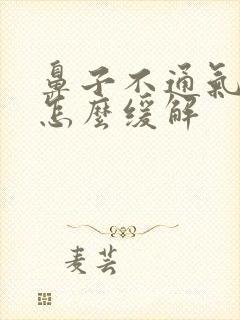 鼻子不通氣
怎麼緩解
麦芸